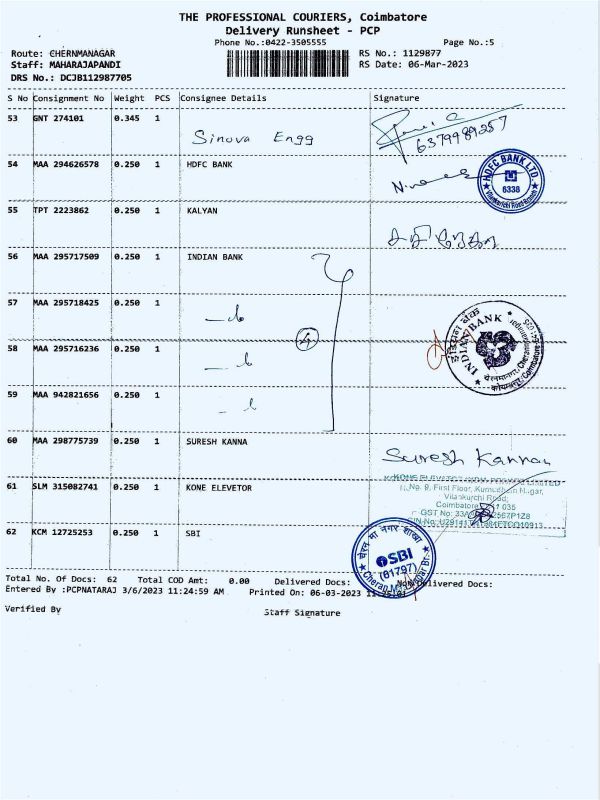 THE PROFESSIONAL COURIERS, Coimbatore
Delivery Runsheet - PCP
Phone No.:0422-3505555 Page No.:5
Route: CHERNMANAGAR RS No.: 1129877
Staff: MAHARAJAPANDI RS Date: 06-Mar-2023
DRS No.: DCJB112987705
S No Consignment No Weight PCS Consignee Details Signature
53 GNT 274101 0.345 1 Sinova Engg
6379989257
54 MAA 294626578 0.250 1 HDFC BANK
HDFC BANK LTD.
6338
55 TPT 2223862 0.250 1 KALYAN
56 MAA 295717509 0.250 1 INDIAN BANK
57 MAA 295718425 0.250 1
4
58 MAA 295716236 0.250 1
इंडियन बैंक
INDIAN BANK
59 MAA 942821656 0.250 1
60 MAA 298775739 0.250 1 SURESH KANNA
Suresh Kannan
61 SLM 315082741 0.250 1 KONE ELEVETOR
No. 9, First Floor, Nagar,
Vilankurichi Road,
Coimbatore 035
62 KCM 12725253 0.250 1 SBI
चेरन मा नगर शाखा
SBI
(61797)
Total No. Of Docs: 62 Total COD Amt: 0.00 Delivered Docs: Non Delivered Docs:
Entered By :PCPNATARAJ 3/6/2023 11:24:59 AM Printed On: 06-03-2023
Verified By Staff Signature